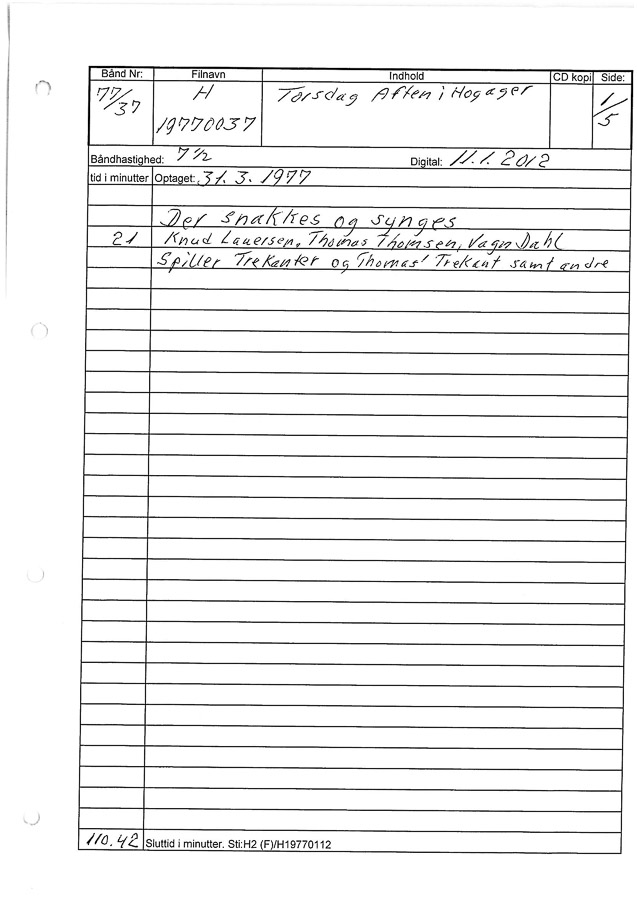 Bånd Nr: Filnavn Indhold CD kopi Side:
77/37 H Torsdag Aften i Hogager 1/5
19770037
Båndhastighed: 7 1/2 Digital: 11.1.2012
tid i minutter Optaget: 31.3.1977
Der snakkes og synges
21 Knud Lauersen, Thomas Thomsen, Vagn Dahl
Spiller Trekanter og Thomas' Trekant samt andre
110.42 Sluttid i minutter. Sti:H2 (F)/H19770112